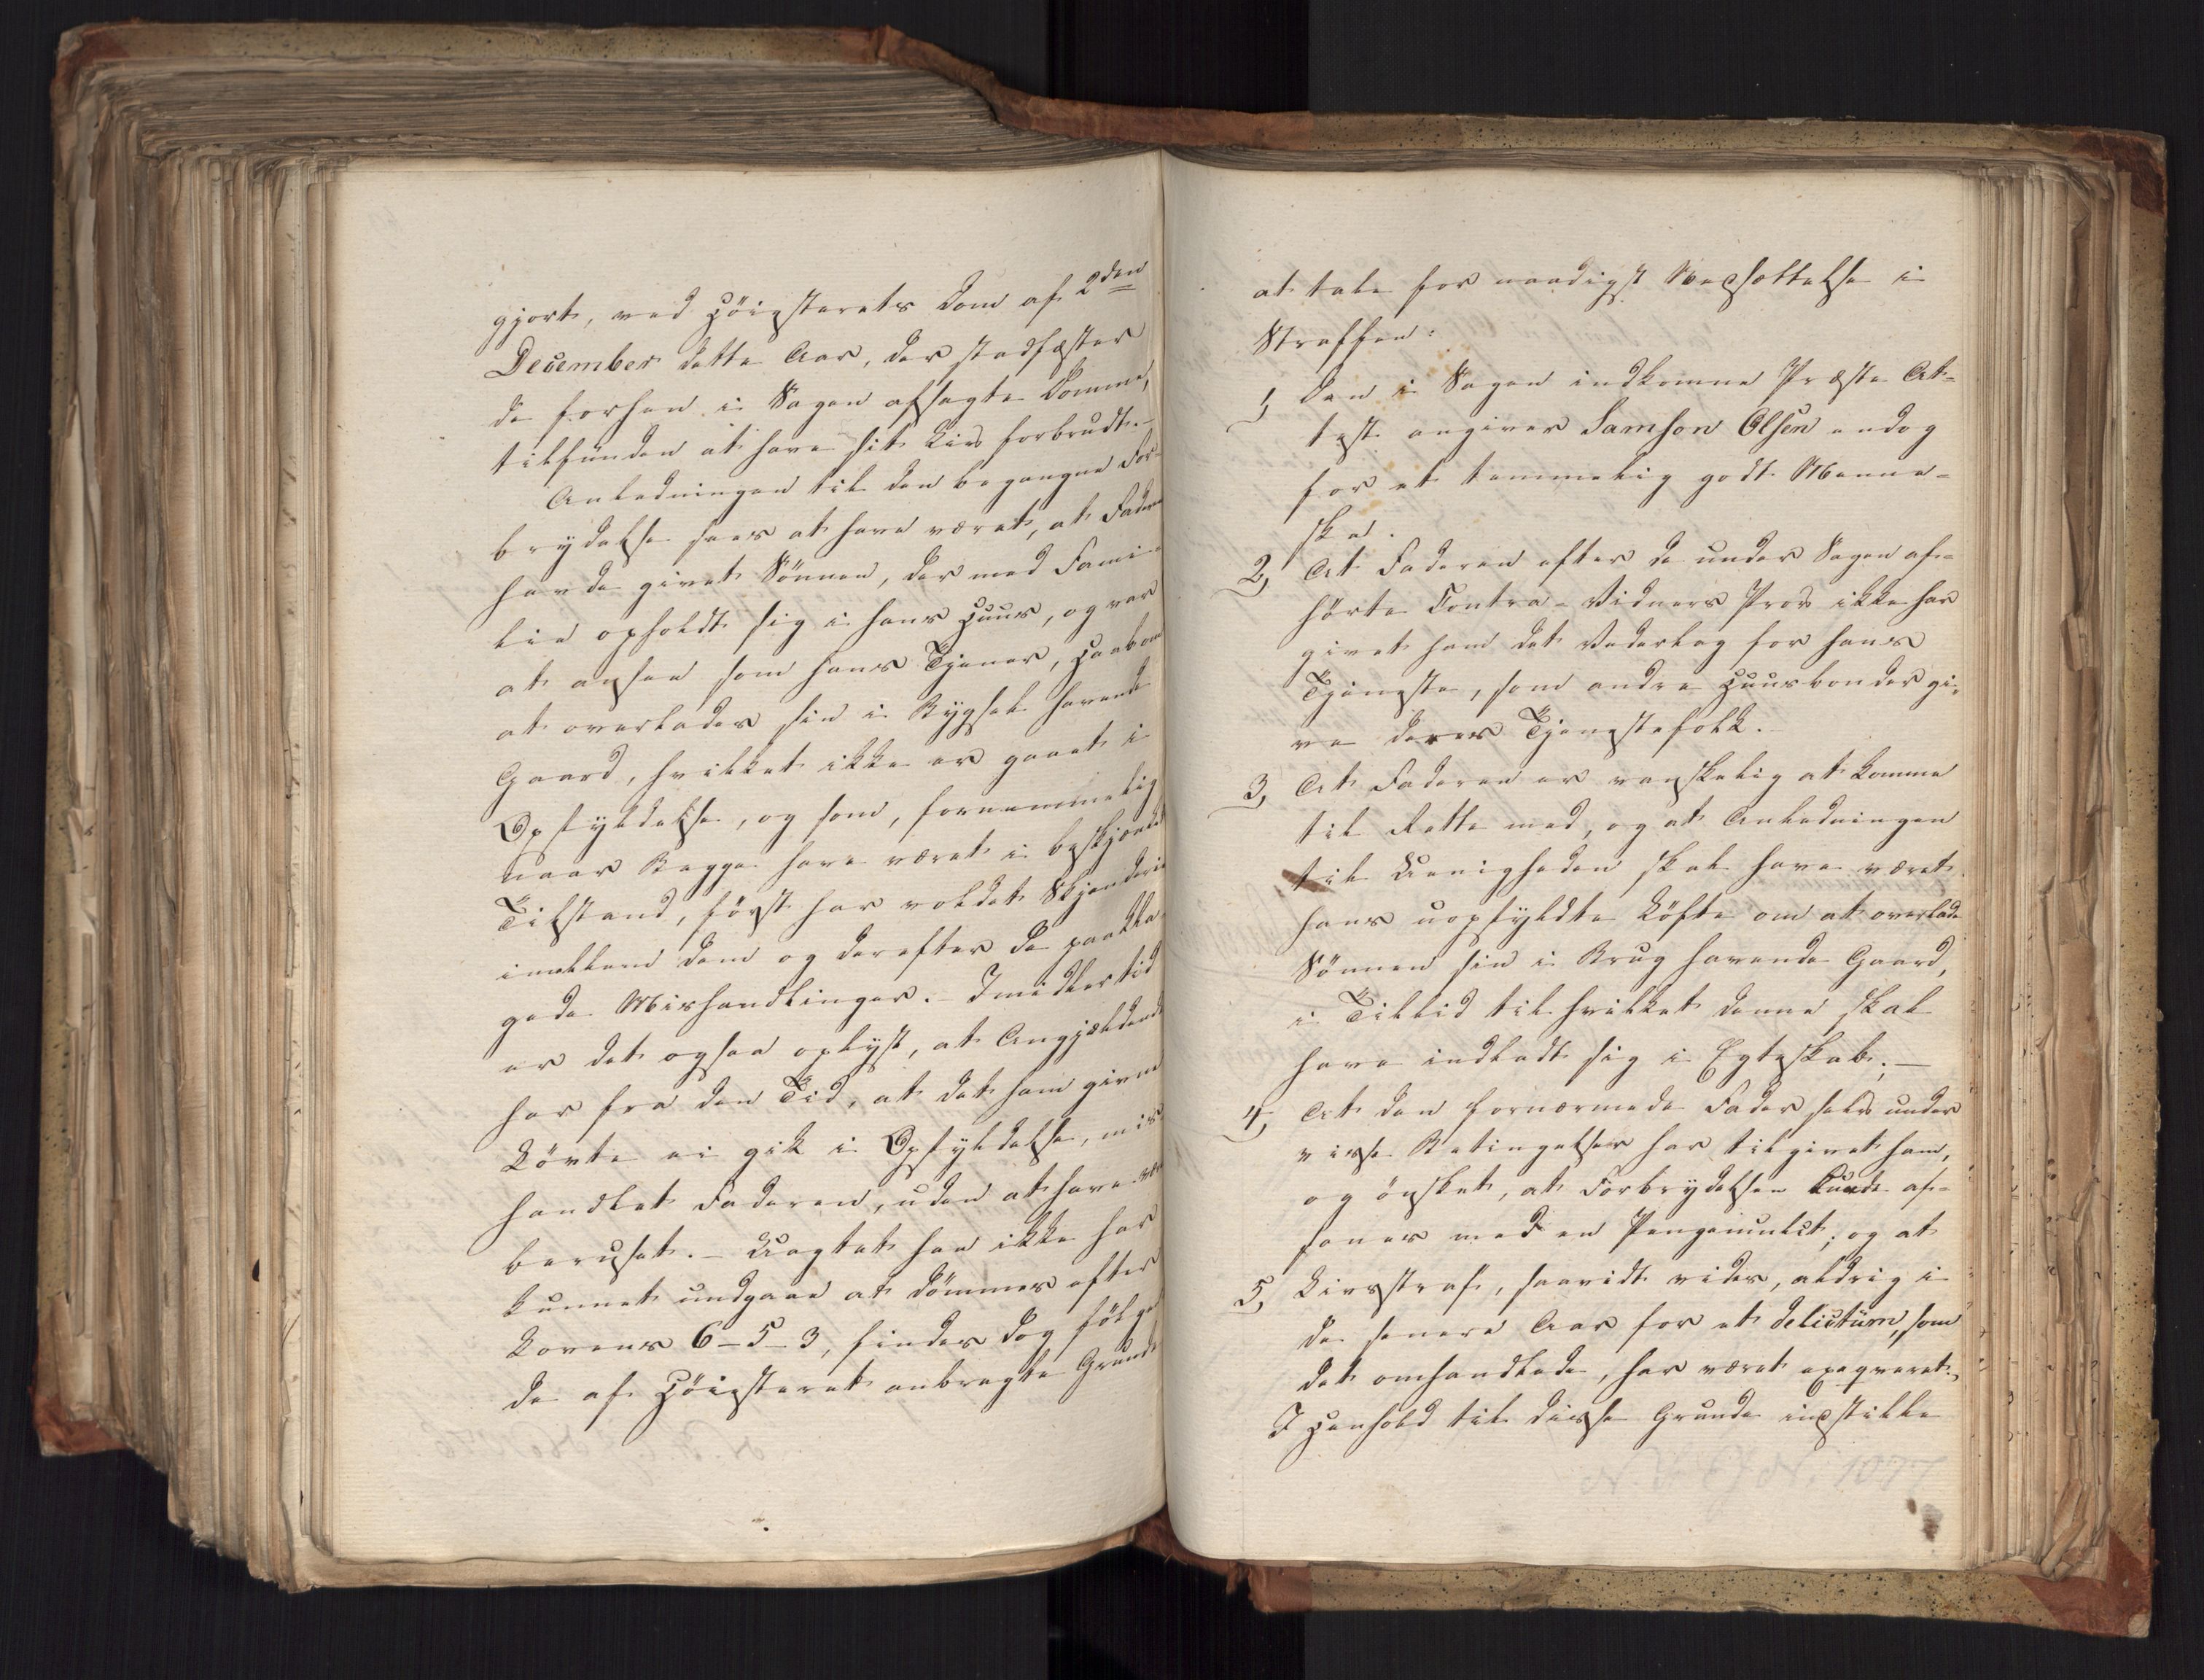 gjort, ved Höiesterets Dom af 2den
December dette Aar, der stadfæster
de forhen i Sagen afsagte Domme,
tilfunden at have sit Liv forbrudt.-
Anledningen til den begangne For-
brydelse sees at have været, at Faderen
havde givet Sönnen, der med Fami-
lie opholdt sig i hans Huus, og var
at ansee som hans Tjener, Haab om
at overlades sin i Bygsel havende
Gaard, hvilket ikke er gaaet i
Opfyldelse, og som, fornemmelig
naar Begge have været i beskjænket
Tilstand, först har voldet Skjenderie
imellem dem og derefter de paakla-
gede Mishandlinger. - Imidlertid
er det ogsaa oplyst, at Angjældende
har fra den Tid, at det ham givne
Lövte ei gik i Opfyldelse, mis-
handlet Faderen, uden at have været
beruset. - Uagtet han ikke har
kunnet undgaae at dömmes efter
Lovens 6-5-3, findes dog fölgen-
de af Höiesteret anbragte Grunde
at tale for naadigst Nedsættelse i
Straffen:
1, Den i Sagen indkomne Præste At-
test angiver Samson Olsen endog
for et temmelig godt Menne-
ske.
2, At Faderen efter de under Sagen af-
hörte Contra-Vidners Prov ikke har
givet ham det Vederlag for hans
Tjeneste, som andre Huusbonder gi-
ve deres Tjenestefolk.-
3, At Faderen er vanskelig at komme
til Rette med, og at Anledningen
til Uenigheden skal have været
hans uopfyldte Löfte om at overlade
Sönnen sin i Brug havende Gaard,
i Tillid til hvilket denne skal
have indladt sig i Egteskab;-
4, At den fornærmede Fader selv under
visse Betingelser har tilgivet ham,
og önsket, at Forbrydelsen kunde af-
sones med en Pengemulct; og at
5, Livsstraf, saavidt vides, aldrig i
de senere Aar for et delictum, som
det omhandlede, har været exeqveret.
I Henhold til disse Grunde indstille